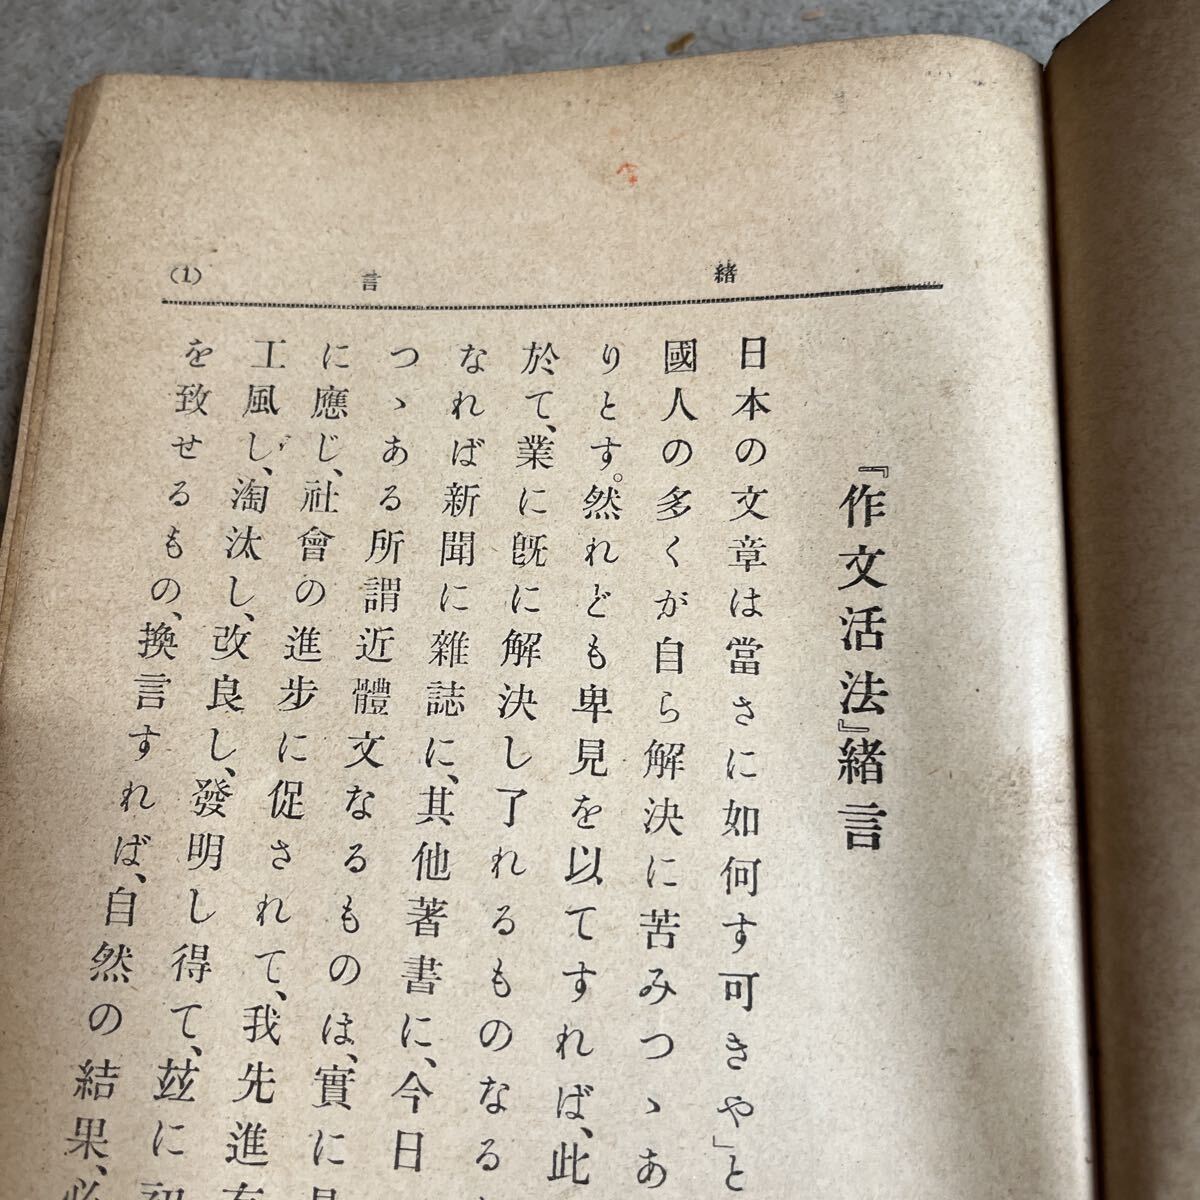 緒言
(1)
『作文活法』緒言
日本の文章は當さに如何す可きや」と
國人の多くが自ら解決に苦みつゝあ
りとす。然れども卑見を以てすれば、此
於て、業に既に解決し了れるものなる
なれば新聞に雜誌に、其他著書に、今日
つゝある所謂近體文なるものは、實に
に應じ、社會の進步に促されて、我先進
工風し、淘汰し、改良し、發明し得て、玆に
を致せるもの、換言すれば、自然の結果、